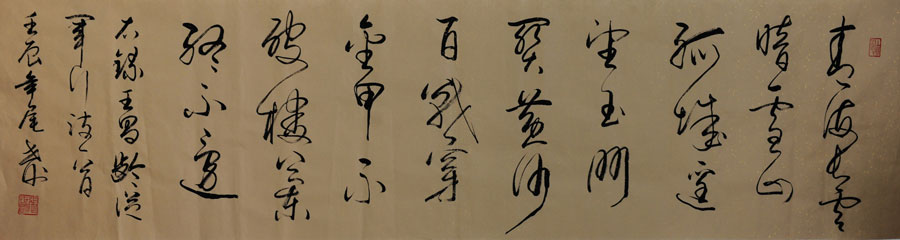 青海长雲
暗雪山
孤城遥
望玉門
關黄沙
百戰穿
金甲不
破樓蘭
終不還
右錄王昌齡從
軍行詩一首
壬辰年尾